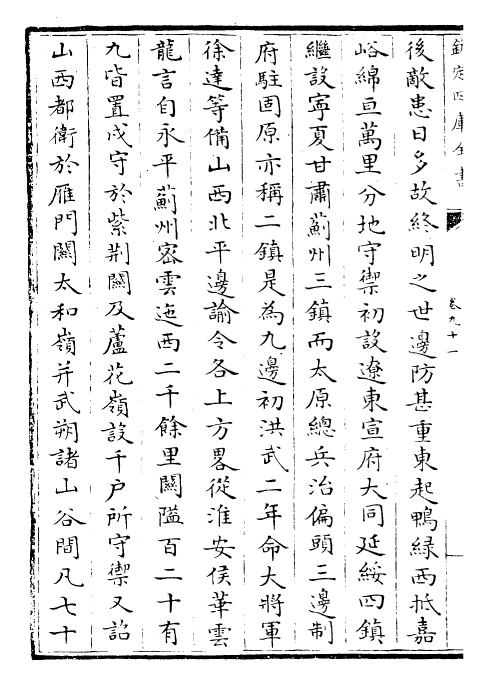 欽定四庫全書
卷九十一
後敵患日多故終明之世邊防甚重東起鴨緑西抵嘉
峪綿亘萬里分地守禦初設遼東宣府大同延綏四鎮
繼設寧夏甘肅薊州三鎮而太原總兵治偏頭三邊制
府駐固原亦稱二鎮是為九邊初洪武二年命大將軍
徐達等備山西北平邊諭令各上方畧從淮安侯華雲
龍言自永平薊州密雲迤西二千餘里關隘百二十有
九皆置戍守於紫荆關及蘆花嶺設千户所守禦又詔
山西都衛於雁門關太和嶺并武朔諸山谷間凡七十